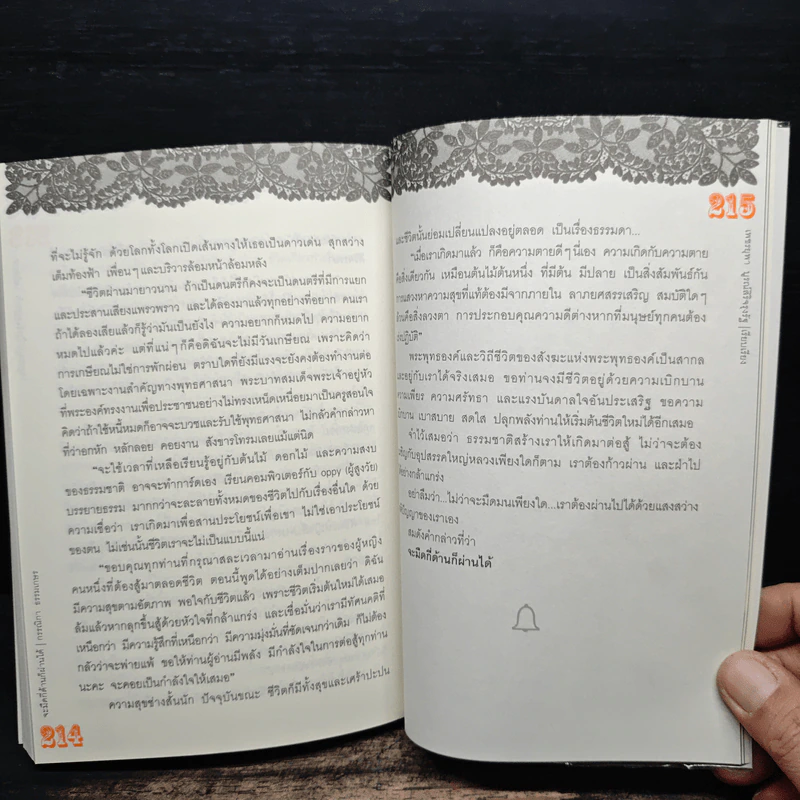 ที่จะไม่รู้จัก ด้วยโลกทั้งโลกเปิดเส้นทางให้เธอเป็นดาวเด่น สุกสว่าง
เต็มท้องฟ้า เพื่อนๆและบริวารล้อมหน้าล้อมหลัง
"ชีวิตผ่านมายาวนาน ถ้าเป็นดนตรีก็คงจะเป็นดนตรีที่มีการแยก
และประสานเสียงแพรวพราว และได้ลองมาแล้วทุกอย่างที่อยาก คนเรา
ถ้าได้ลองเสียแล้วก็รู้ว่ามันเป็นยังไง ความอยากก็หมดไป ความอยาก
หมดไปแล้วค่ะ แต่ที่แน่ๆก็คือดิฉันจะไม่มีวันเกษียณ เพราะคิดว่า
การเกษียณไม่ใช่การพักผ่อน ตราบใดที่ยังมีแรงจะยังคงทำงานต่อ
โดยเฉพาะงานสำคัญทางพุทธศาสนา พระบาทสมเด็จพระเจ้าอยู่หัว
ที่พระองค์ทรงงานเพื่อประชาชนอย่างไม่ทรงเหน็ดเหนื่อยมาเป็นครูสอนใจ
คิดว่าถ้าใช้หนี้หมดก็อาจจะบวชและรับใช้พุทธศาสนา ไม่กลัวคำกล่าวหา
ที่ว่าอกหัก หลักลอย คอยงาน สังขารโทรมเลยแม้แต่นิด
"จะใช้เวลาที่เหลือเรียนรู้อยู่กับต้นไม้ ดอกไม้ และความสงบ
ของธรรมชาติ อาจจะทำการ์ดเอง เรียนคอมพิวเตอร์กับ oppy (ผู้สูงวัย)
บรรยายธรรม มากกว่าจะละลายทั้งหมดของชีวิตไปกับเรื่องอื่นใด ด้วย
ความเชื่อว่า เราเกิดมาเพื่อสานประโยชน์เพื่อเขา ไม่ใช่เอาประโยชน์
ของตน ไม่เช่นนั้นชีวิตเราจะไม่เป็นแบบนี้แน่
"ขอบคุณทุกท่านที่กรุณาสละเวลามาอ่านเรื่องราวของผู้หญิง
คนหนึ่งที่ต้องสู้มาตลอดชีวิต ตอนนี้พูดได้อย่างเต็มปากเลยว่า ดิฉัน
มีความสุขตามอัตภาพ พอใจกับชีวิตแล้ว เพราะชีวิตเริ่มต้นใหม่ได้เสมอ
ล้มแล้วหากลุกขึ้นสู้ด้วยหัวใจที่กล้าแกร่ง และเชื่อมั่นว่าเรามีทัศนคติที่
เหนือกว่า มีความรู้สึกที่เหนือกว่า มีความมุ่งมั่นที่ชัดเจนกว่าเดิม ก็ไม่ต้อง
กลัวว่าจะพ่ายแพ้ ขอให้ท่านผู้อ่านมีพลัง มีกำลังใจในการต่อสู้ทุกท่าน
นะคะ จะคอยเป็นกำลังใจให้เสมอ"
ความสุขช่างสั้นนัก ปัจจุบันขณะ ชีวิตก็มีทั้งสุขและเศร้าปะปน
จะมืดกี่ด้านก็ผ่านได้ | กรรณิกา ธรรมเกษร
214
215
และชีวิตนั้นย่อมเปลี่ยนแปลงอยู่ตลอด เป็นเรื่องธรรมดา...
"เมื่อเราเกิดมาแล้ว ก็คือความตายดีๆนี่เอง ความเกิดกับความตาย
คือสิ่งเดียวกัน เหมือนต้นไม้ต้นหนึ่ง ที่มีต้น มีปลาย เป็นสิ่งสัมพันธ์กัน
การแสวงหาความสุขที่แท้ต้องมีจากภายใน ลาภยศสรรเสริญ สมบัติใดๆ
ล้วนคือสิ่งลวงตา การประกอบคุณความดีต่างหากที่มนุษย์ทุกคนต้อง
ปฏิบัติ"
พระพุทธองค์และวิถีชีวิตของสังฆะแห่งพระพุทธองค์เป็นสากล
และอยู่กับเราได้จริงเสมอ ขอท่านจงมีชีวิตอยู่ด้วยความเบิกบาน
ความเพียร ความศรัทธา และแรงบันดาลใจอันประเสริฐ ขอความ
เบิกบาน เบาสบาย สดใส ปลุกพลังท่านให้เริ่มต้นชีวิตใหม่ได้อีกเสมอ
จำไว้เสมอว่า ธรรมชาติสร้างเราให้เกิดมาต่อสู้ ไม่ว่าจะต้อง
เผชิญกับอุปสรรคใหญ่หลวงเพียงใดก็ตาม เราต้องก้าวผ่าน และฝ่าไป
อย่างกล้าแกร่ง
อย่าลืมว่า...ไม่ว่าจะมืดมนเพียงใด...เราต้องผ่านไปได้ด้วยแสงสว่าง
ปัญญาของเราเอง
สมดังคำกล่าวที่ว่า
จะมืดกี่ด้านก็ผ่านได้